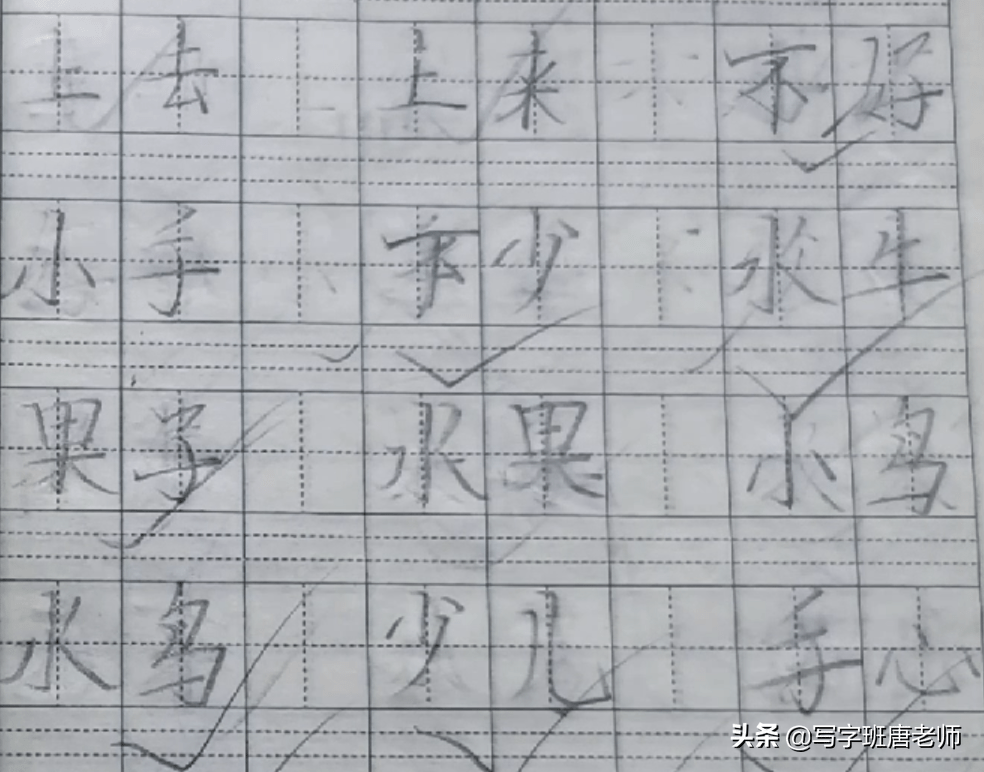 上去 上来 不好
小手 不少 水牛
果子 水果 小鸟
水鸟 少儿 手心
头条 @写字班唐老师